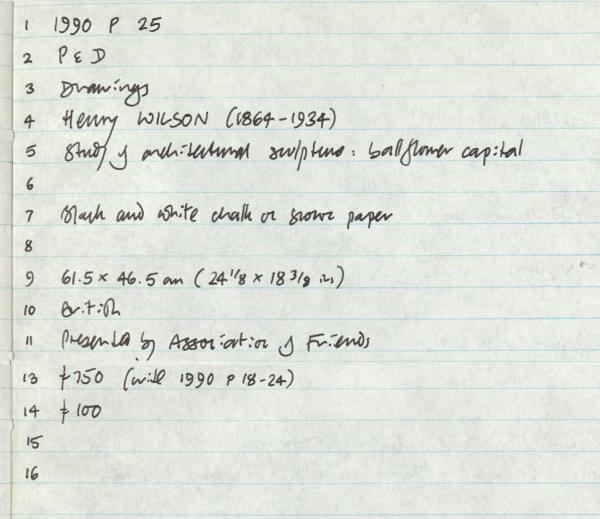 1 1990 P 25
2 P & D
3 Drawings
4 Henry WILSON (1864-1934)
5 Study of architectural sculpture: ballflower capital
6
7 Black and white chalk on brown paper
8
9 61.5 × 46.5 cm (24 1/8 × 18 3/8 ins)
10 British
11 Presented by Association of Friends
13 £750 (with 1990 P 18-24)
14 £100
15
16